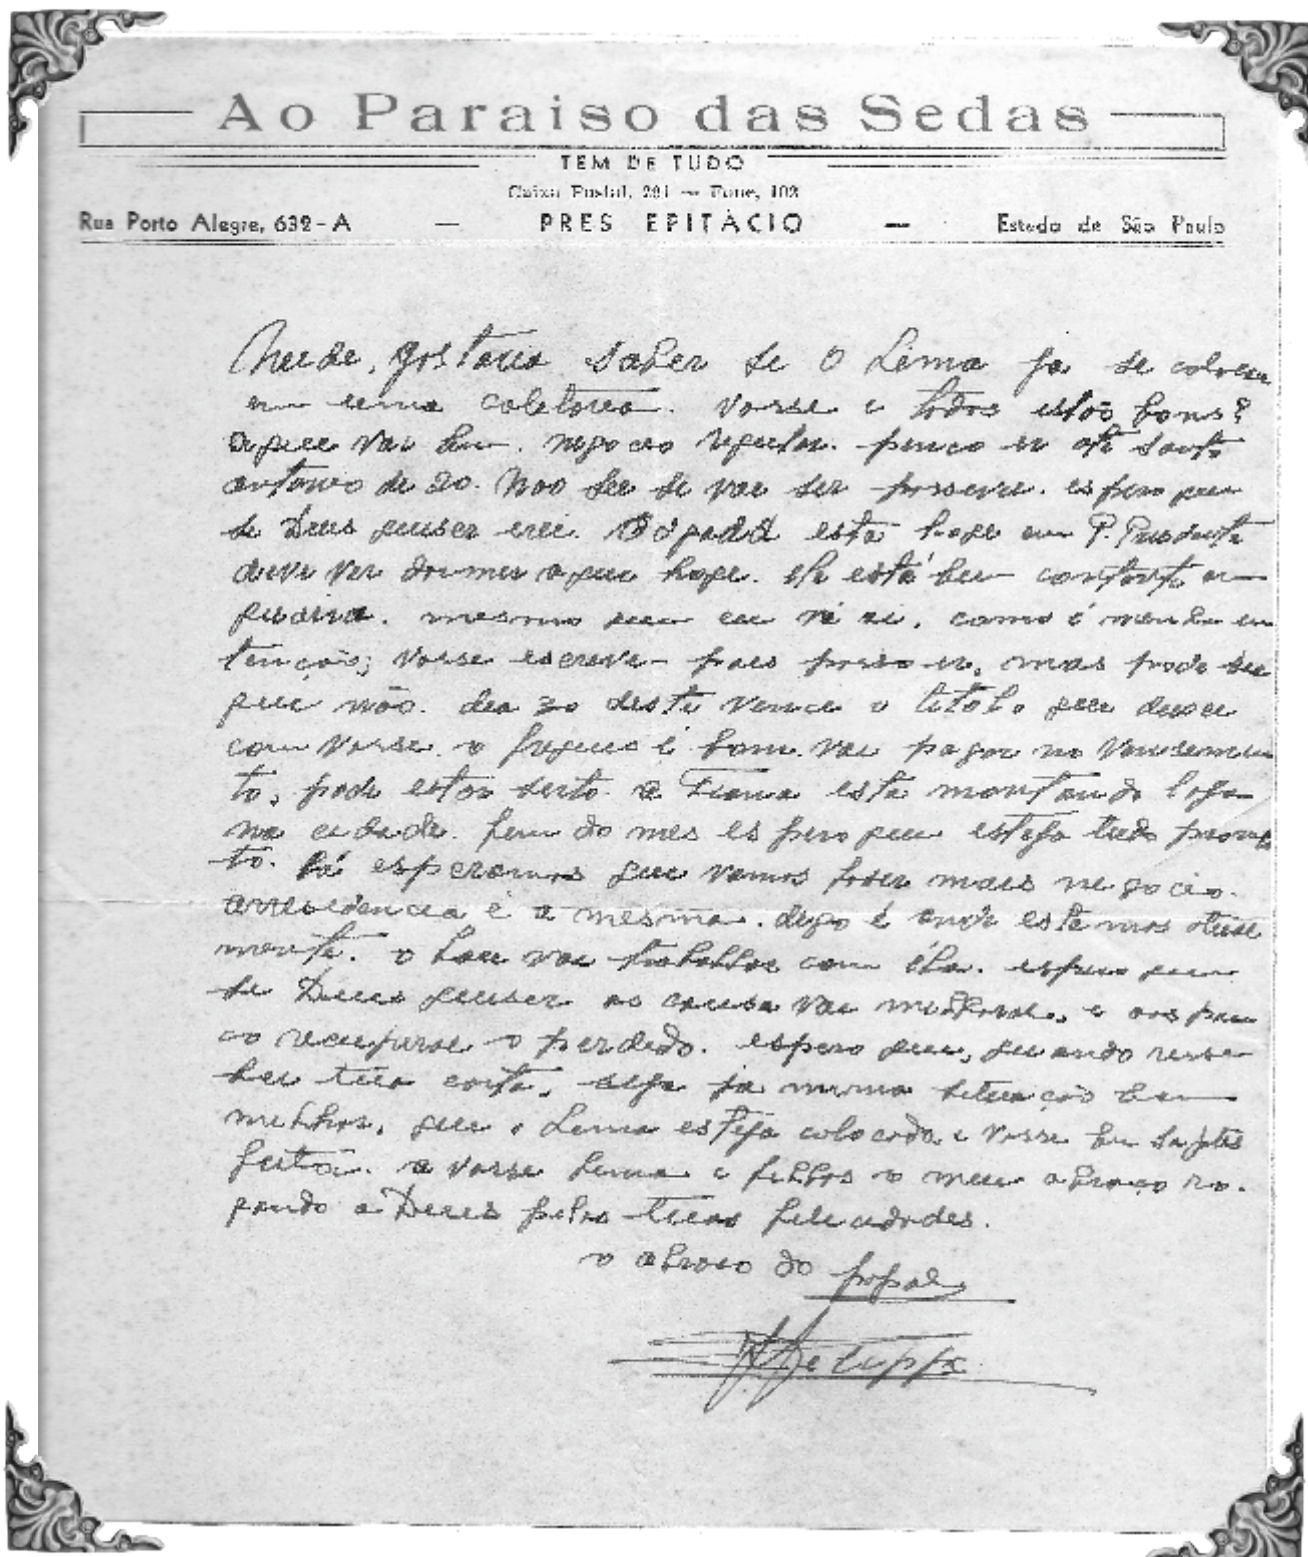 Ao Paraiso das Sedas
TEM DE TUDO
Caixa Postal, 291 — Fone, 102
Rua Porto Alegre, 632-A — PRES EPITÁCIO — Estado de São Paulo
Neide, gostaria saber se o Lima ja se colocou
em uma coletorea. Vosse e todos estão bons?
aquee vai bem. negocio regular. penco ir até santo
antonio de 20. não sei se vae ser posseve. espero que
se Deus queser irei. está hoge em P. Prudente
deve vir dormer aquee hoge. ele está bem contente em
mesmo que eu vá ai, como é menha en
tenção; vosse escreve- pois posso ir, mas pode ser
que não. dea 30 deste vence o titolo que dexei
com vosse. o fregues é bom vai pagar no vensemen
to, pode estar serto. a está montando loja
na cidade. fem do mes espero que esteja tudo pron
to. Lá esperamos que vamos fazer mais negocio.
arresedencia é a mesma. dego é onde estamos atual
mente. o vai trabalhar com éla. espero que
se Deus queser as causa vai melhorar, e aos pou
co recuperar o perdedo. espero que, quando resse
ber tua carta, seja ja numa setuação bem
melhor, que o Lima esteja colocado e vosse bem sa-ptes
feita. a vosse Lima e filhos o meu abraço ro.
gando a Deus pelas tuas felecidades.
o abraço do papae
Felippe